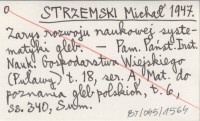 0
STRZEMSKI Michał 1947.
Zarys rozwoju naukowej syste-
matyki gleb. — Pam. Państ. Inst.
Nauk. Gospodarstwa Wiejskiego
(Puławy) t. 18, ser. A, Mat. do
poznania gleb polskich, t. 6,
ss. 340, Sum.
BJ/045/1564